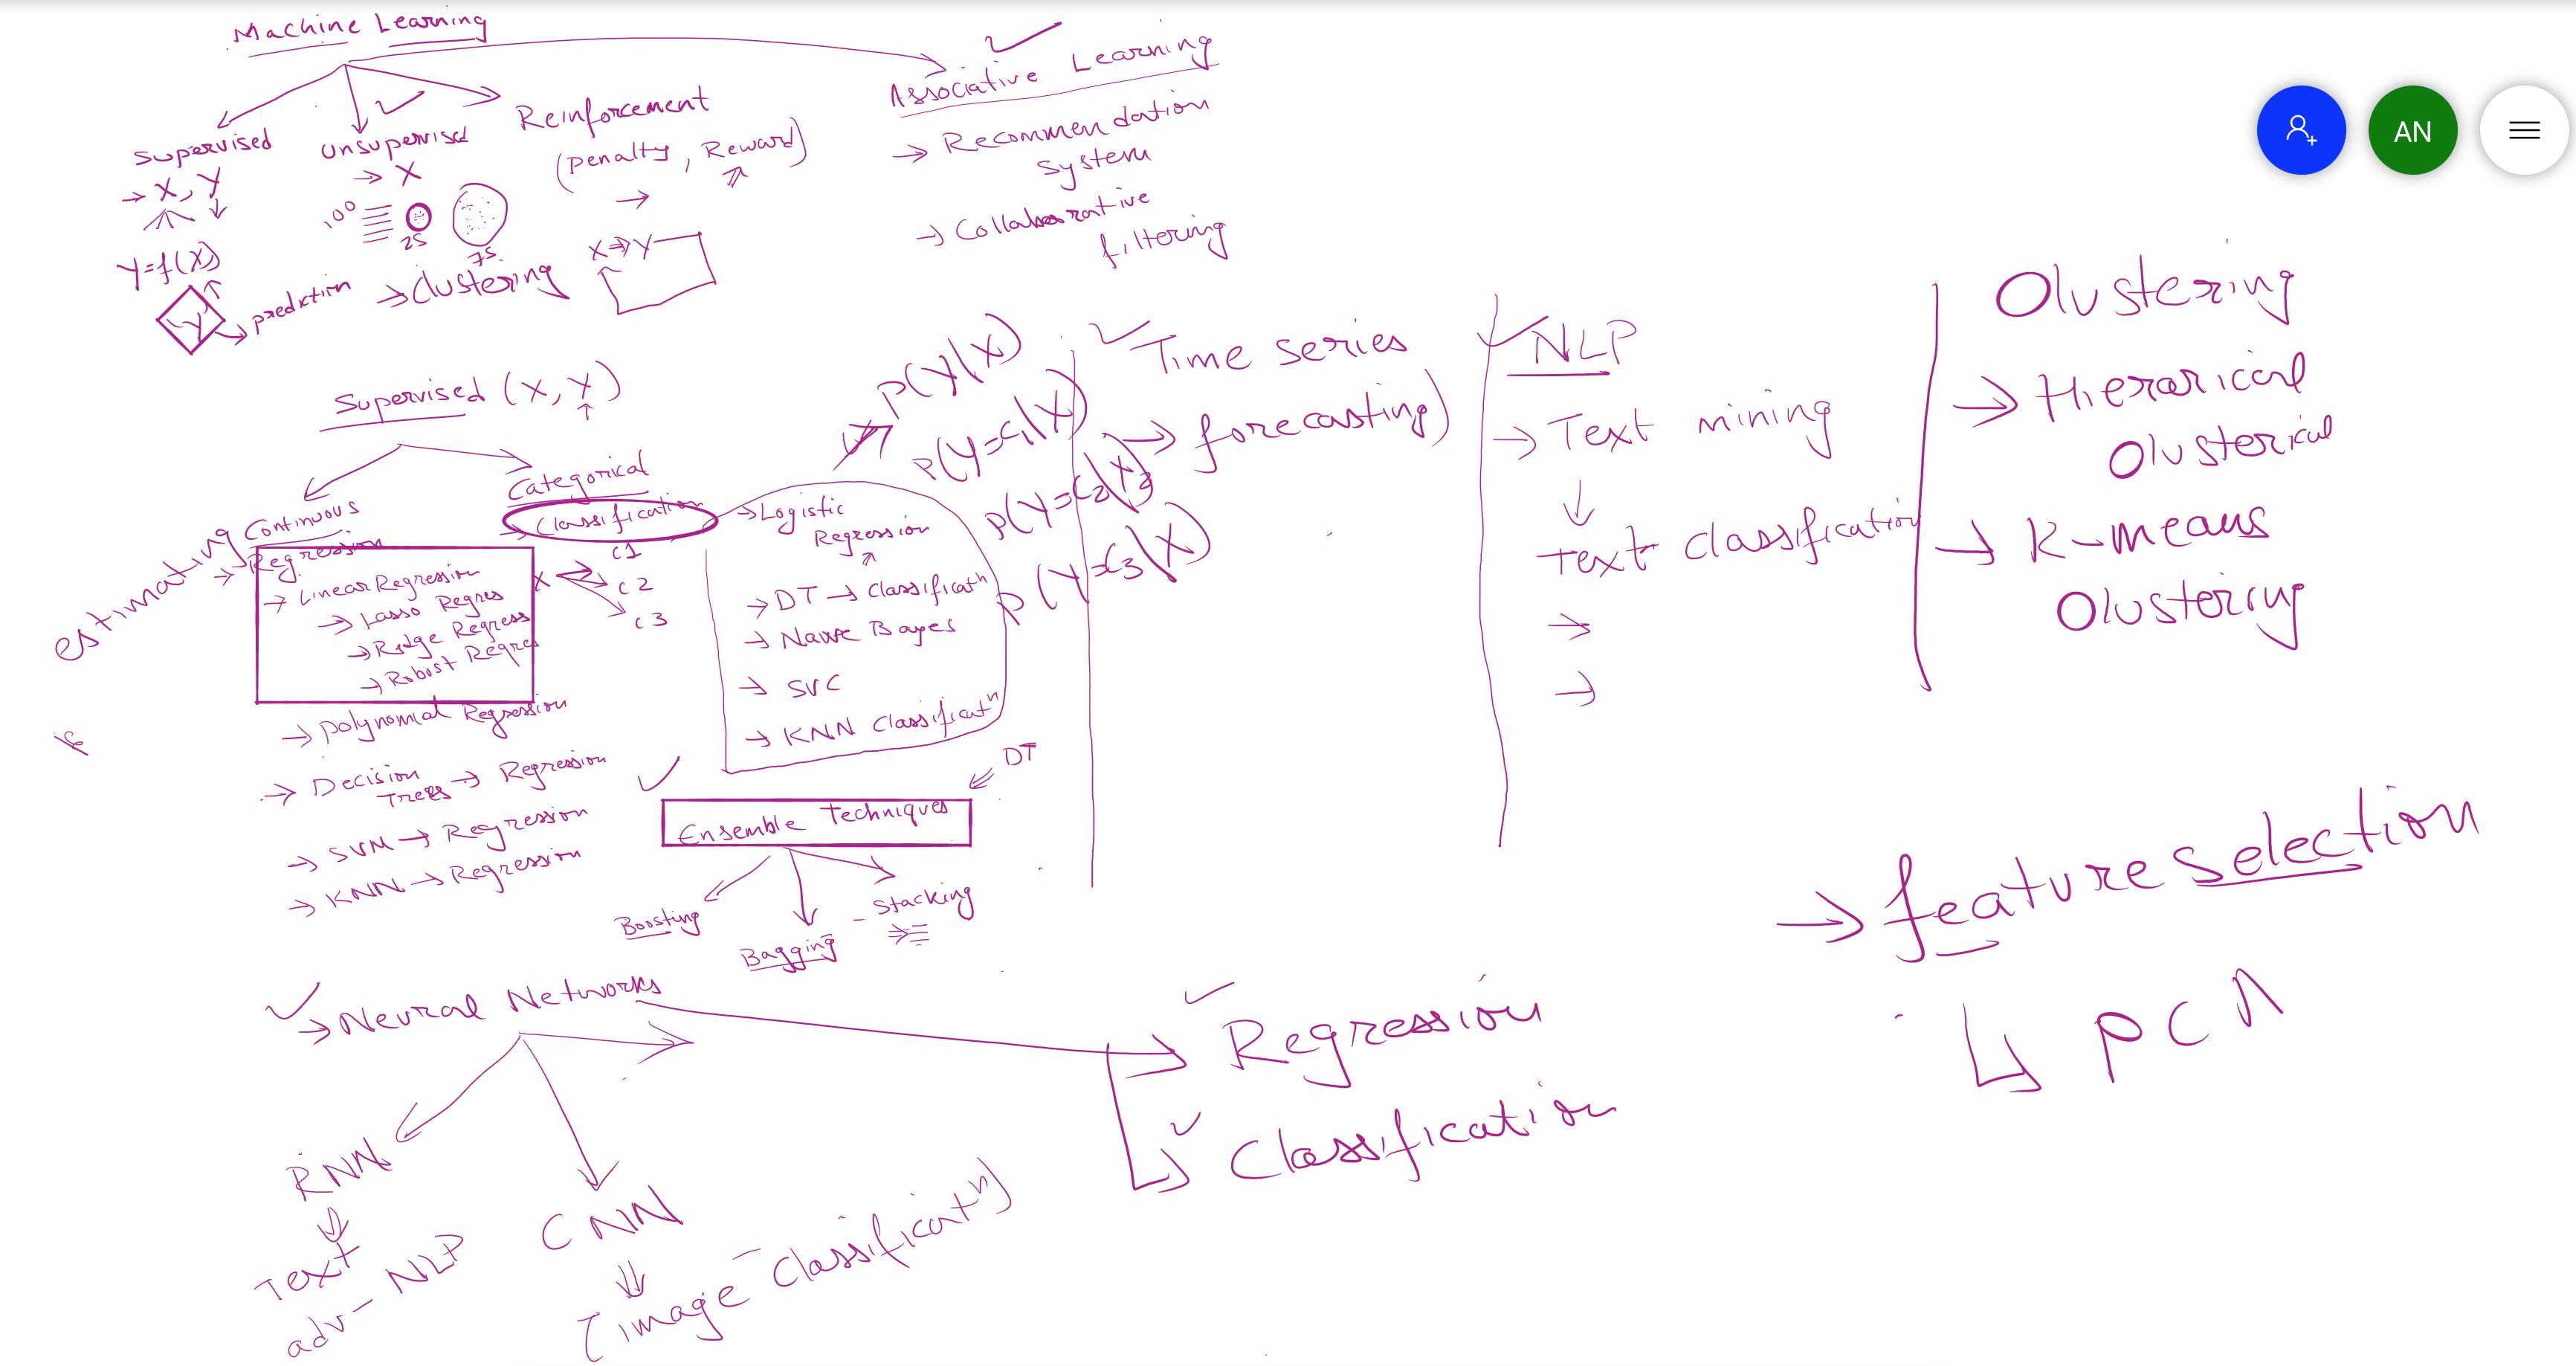 Machine Learning
Supervised
→ X, Y
Y=f(X)
Y → prediction
Unsupervised
→ X
100
25
75
→ Clustering
Reinforcement
(Penalty, Reward)
→
X ⇒ Y
Associative Learning
→ Recommendation
System
→ Collaborative
filtering
Supervised (X, Y)
Continuous
→ Regression
estimating
→ Linear Regression
→ Lasso Regres
→ Ridge Regress
→ Robust Regres
→ Polynomial Regression
→ Decision
Trees → Regression
→ SVM → Regression
→ KNN → Regression
Categorical
→ Classification
X
C1
C2
C3
→ Logistic
Regression
→ DT → Classificatⁿ
→ Naive Bayes
→ SVC
→ KNN Classificatⁿ
P(Y|X)
P(Y=C1|X)
P(Y=C2|X)
P(Y=C3|X)
DT
Ensemble Techniques
Boosting
Bagging
- Stacking
Time series
→ forecasting)
NLP
→ Text mining
↓
Text classification
→
→
Olustering
→ Hierarical
Olusterical
→ K-means
Olustering
→ feature selection
PCA
→ Neural Networks
Regression
Classification
RNN
Text
adv - NLP
CNN
(image - Classificatⁿ)
AN